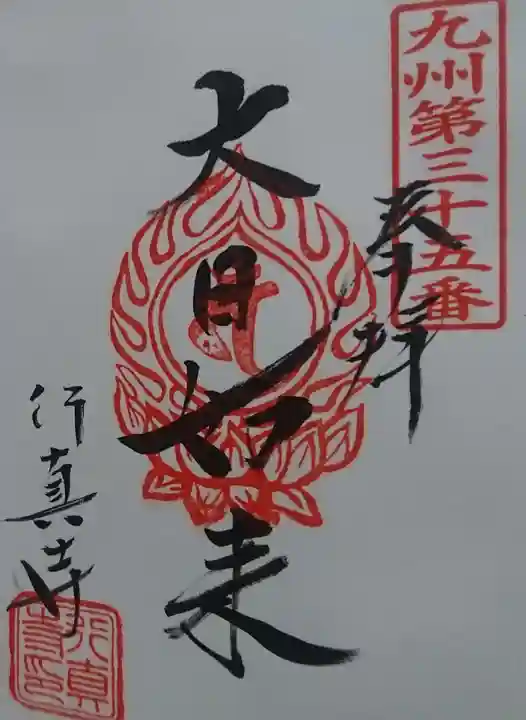 九州第三十五番
奉拝
大日如来
行真寺
行真
寺印